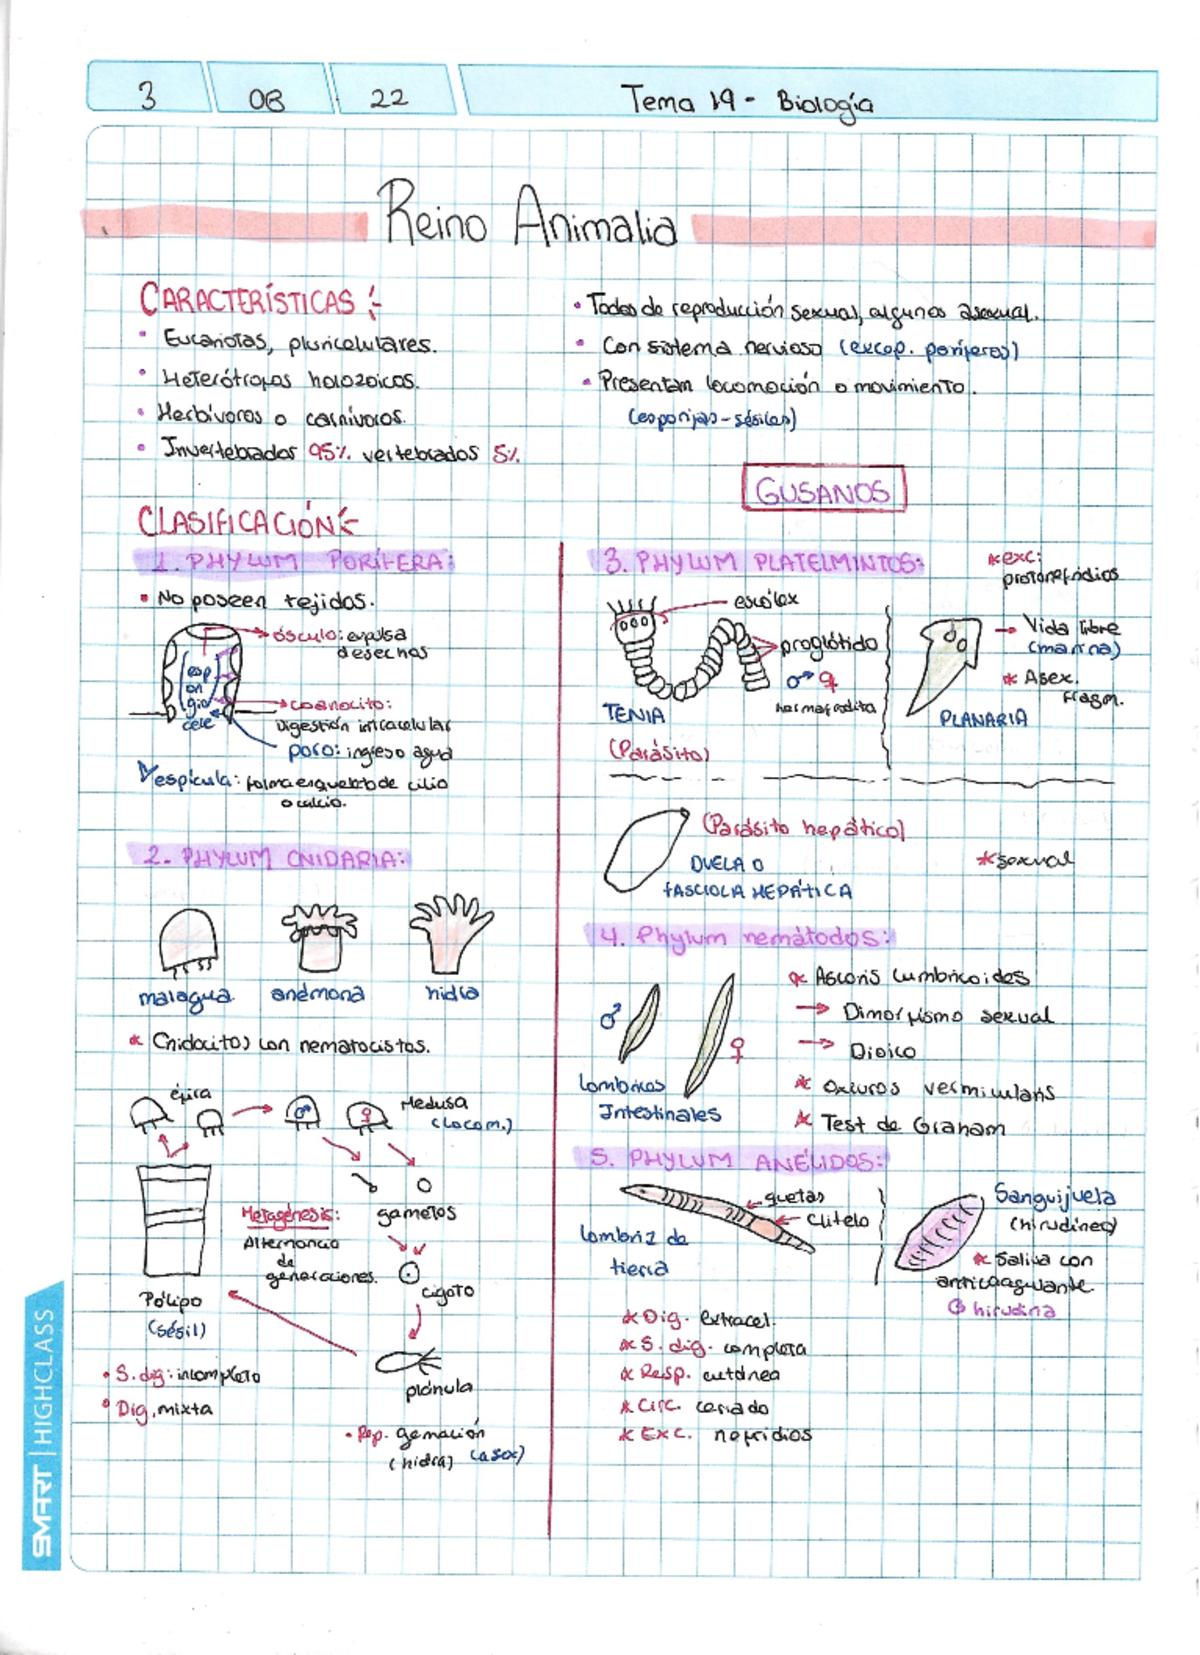 3 08 22 Tema 19 - Biología
Reino Animalia
CARACTERÍSTICAS:
• Eucariotas, pluricelulares.
• Heterótrofos holozoicos.
• Herbívoros o carnívoros.
• Invertebrados 95% vertebrados 5%
• Todos de reproducción sexual, algunos asexual.
• Con sistema nervioso (excep. poríferos)
• Presentan locomoción o movimiento.
(esponjas - sésiles)
CLASIFICACIÓN:
1. PHYLUM PORÍFERA:
• No poseen tejidos.
ósculo: expulsa
desechos
esp
on
gio
cele
coanocito:
Digestión intracelular
poro: ingreso agua
espícula: forma esqueleto de cilio
o calcio.
2. PHYLUM CNIDARIA:
malagua anémona hidra
* Cnidocitos con nematocistos.
éfira
♂ ♀ Medusa
(Locom.)
Metagénesis:
Alternancia
de
generaciones.
gametos
cigoto
Pólipo
(sésil)
plánula
• S. dig: incompleto
• Dig. mixta
• Rep. gemación
(hidra) (asex)
GUSANOS
3. PHYLUM PLATELMINTOS:
* exc:
protonefridios
escólex
proglótido
♂ ♀
hermafrodita
TENIA
(Parásito)
→ Vida libre
(marina)
* Asex.
Fragm.
PLANARIA
(Parásito hepático)
DUELA O
FASCIOLA HEPÁTICA
* sexual
4. Phylum nemátodos:
♂ ♀
Lombrices
Intestinales
* Ascaris Lumbricoides
→ Dimorfismo sexual
→ Dioico
* Oxiuros vermicularis
* Test de Graham
5. PHYLUM ANÉLIDOS:
quetas
Clitelo
Lombriz de
tierra
Sanguijuela
(hirudineo)
* Saliva con
anticoagulante.
hirudina
* Dig. extracel.
* S. dig. completa
* Resp. cutánea
* Circ. cerrado
* Exc. nefridios
SMART | HIGHCLASS